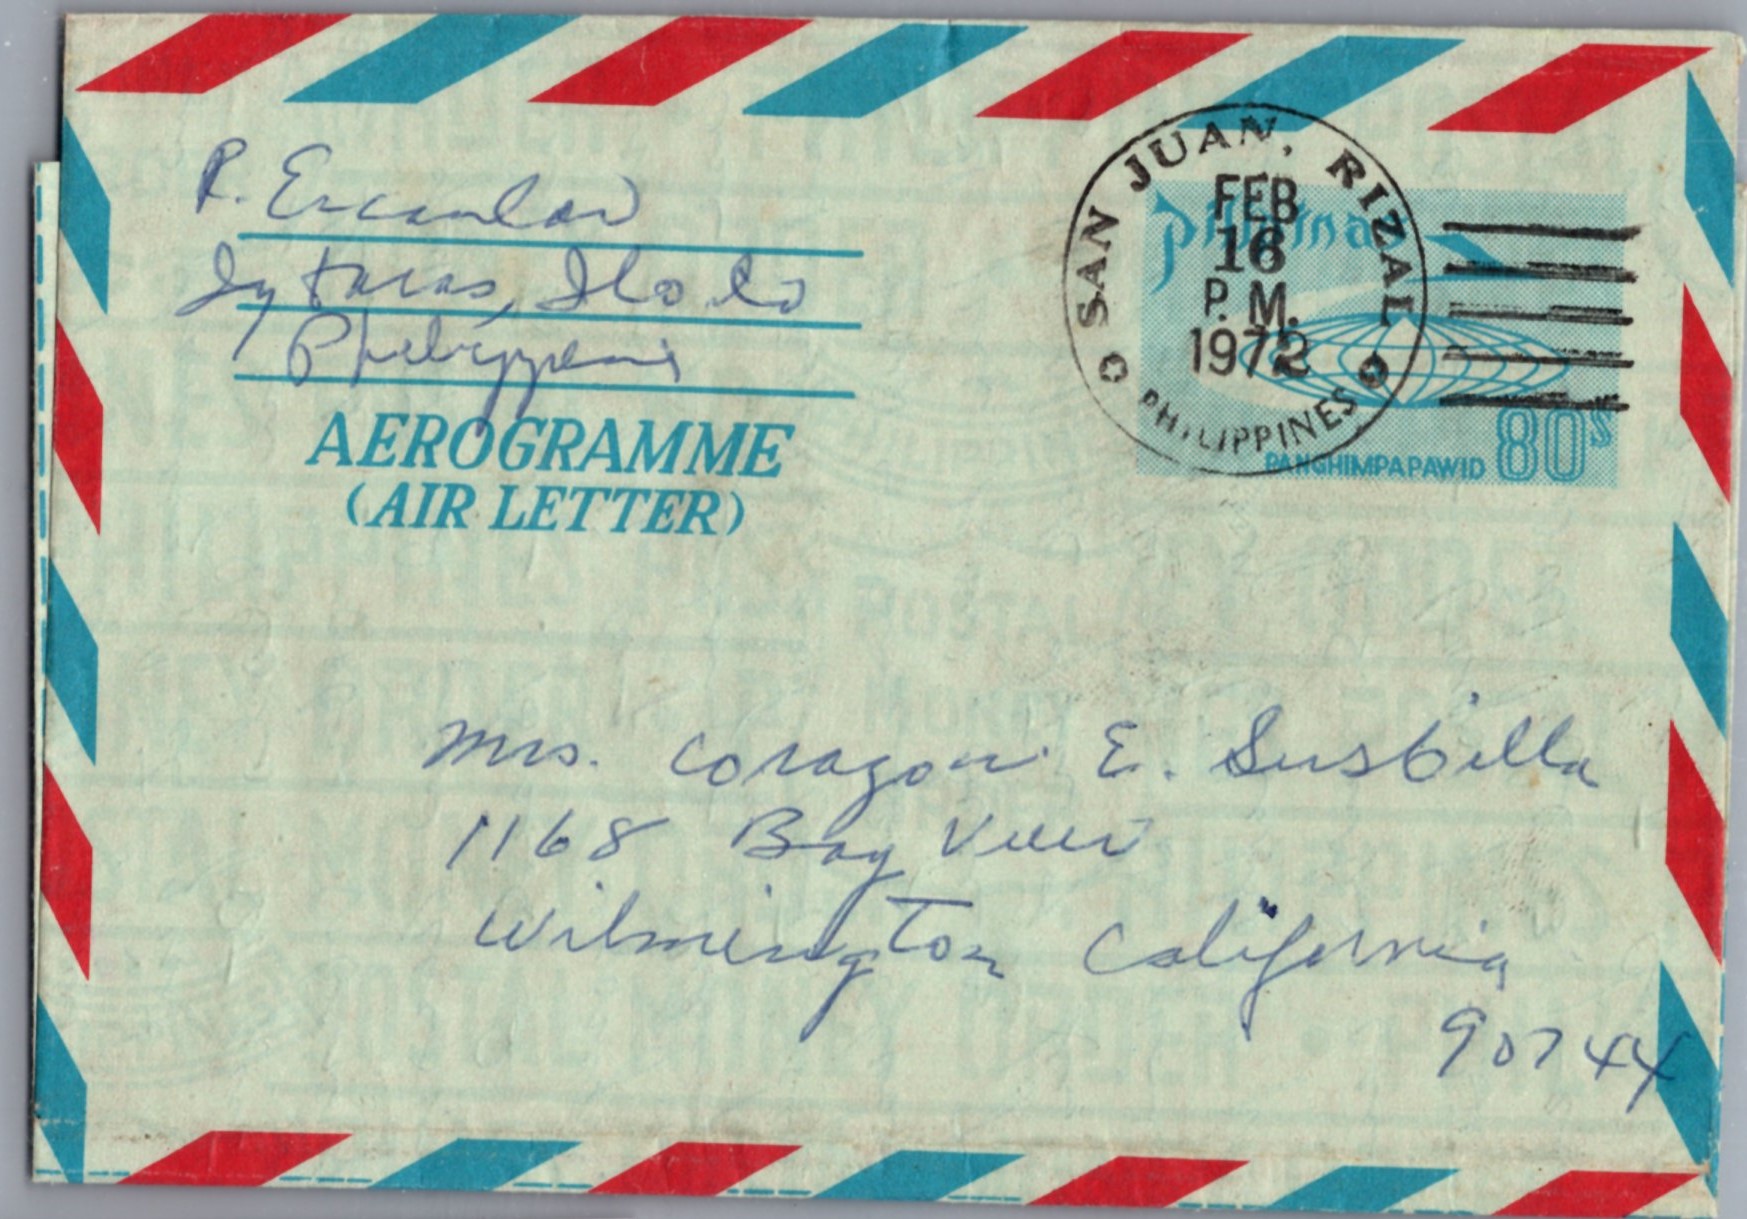 R. Escanlar
Jg taras, Iloilo
Philippines
AEROGRAMME
(AIR LETTER)
SAN JUAN, RIZAL
FEB
16
P. M.
1972
PHILIPPINES
pilipinas
80s
PANGHIMPAPAWID
POSTAL
MONEY
ORDER
Mrs. Corazon E. Susbilla
1168 Bay View
Wilmington California
90744